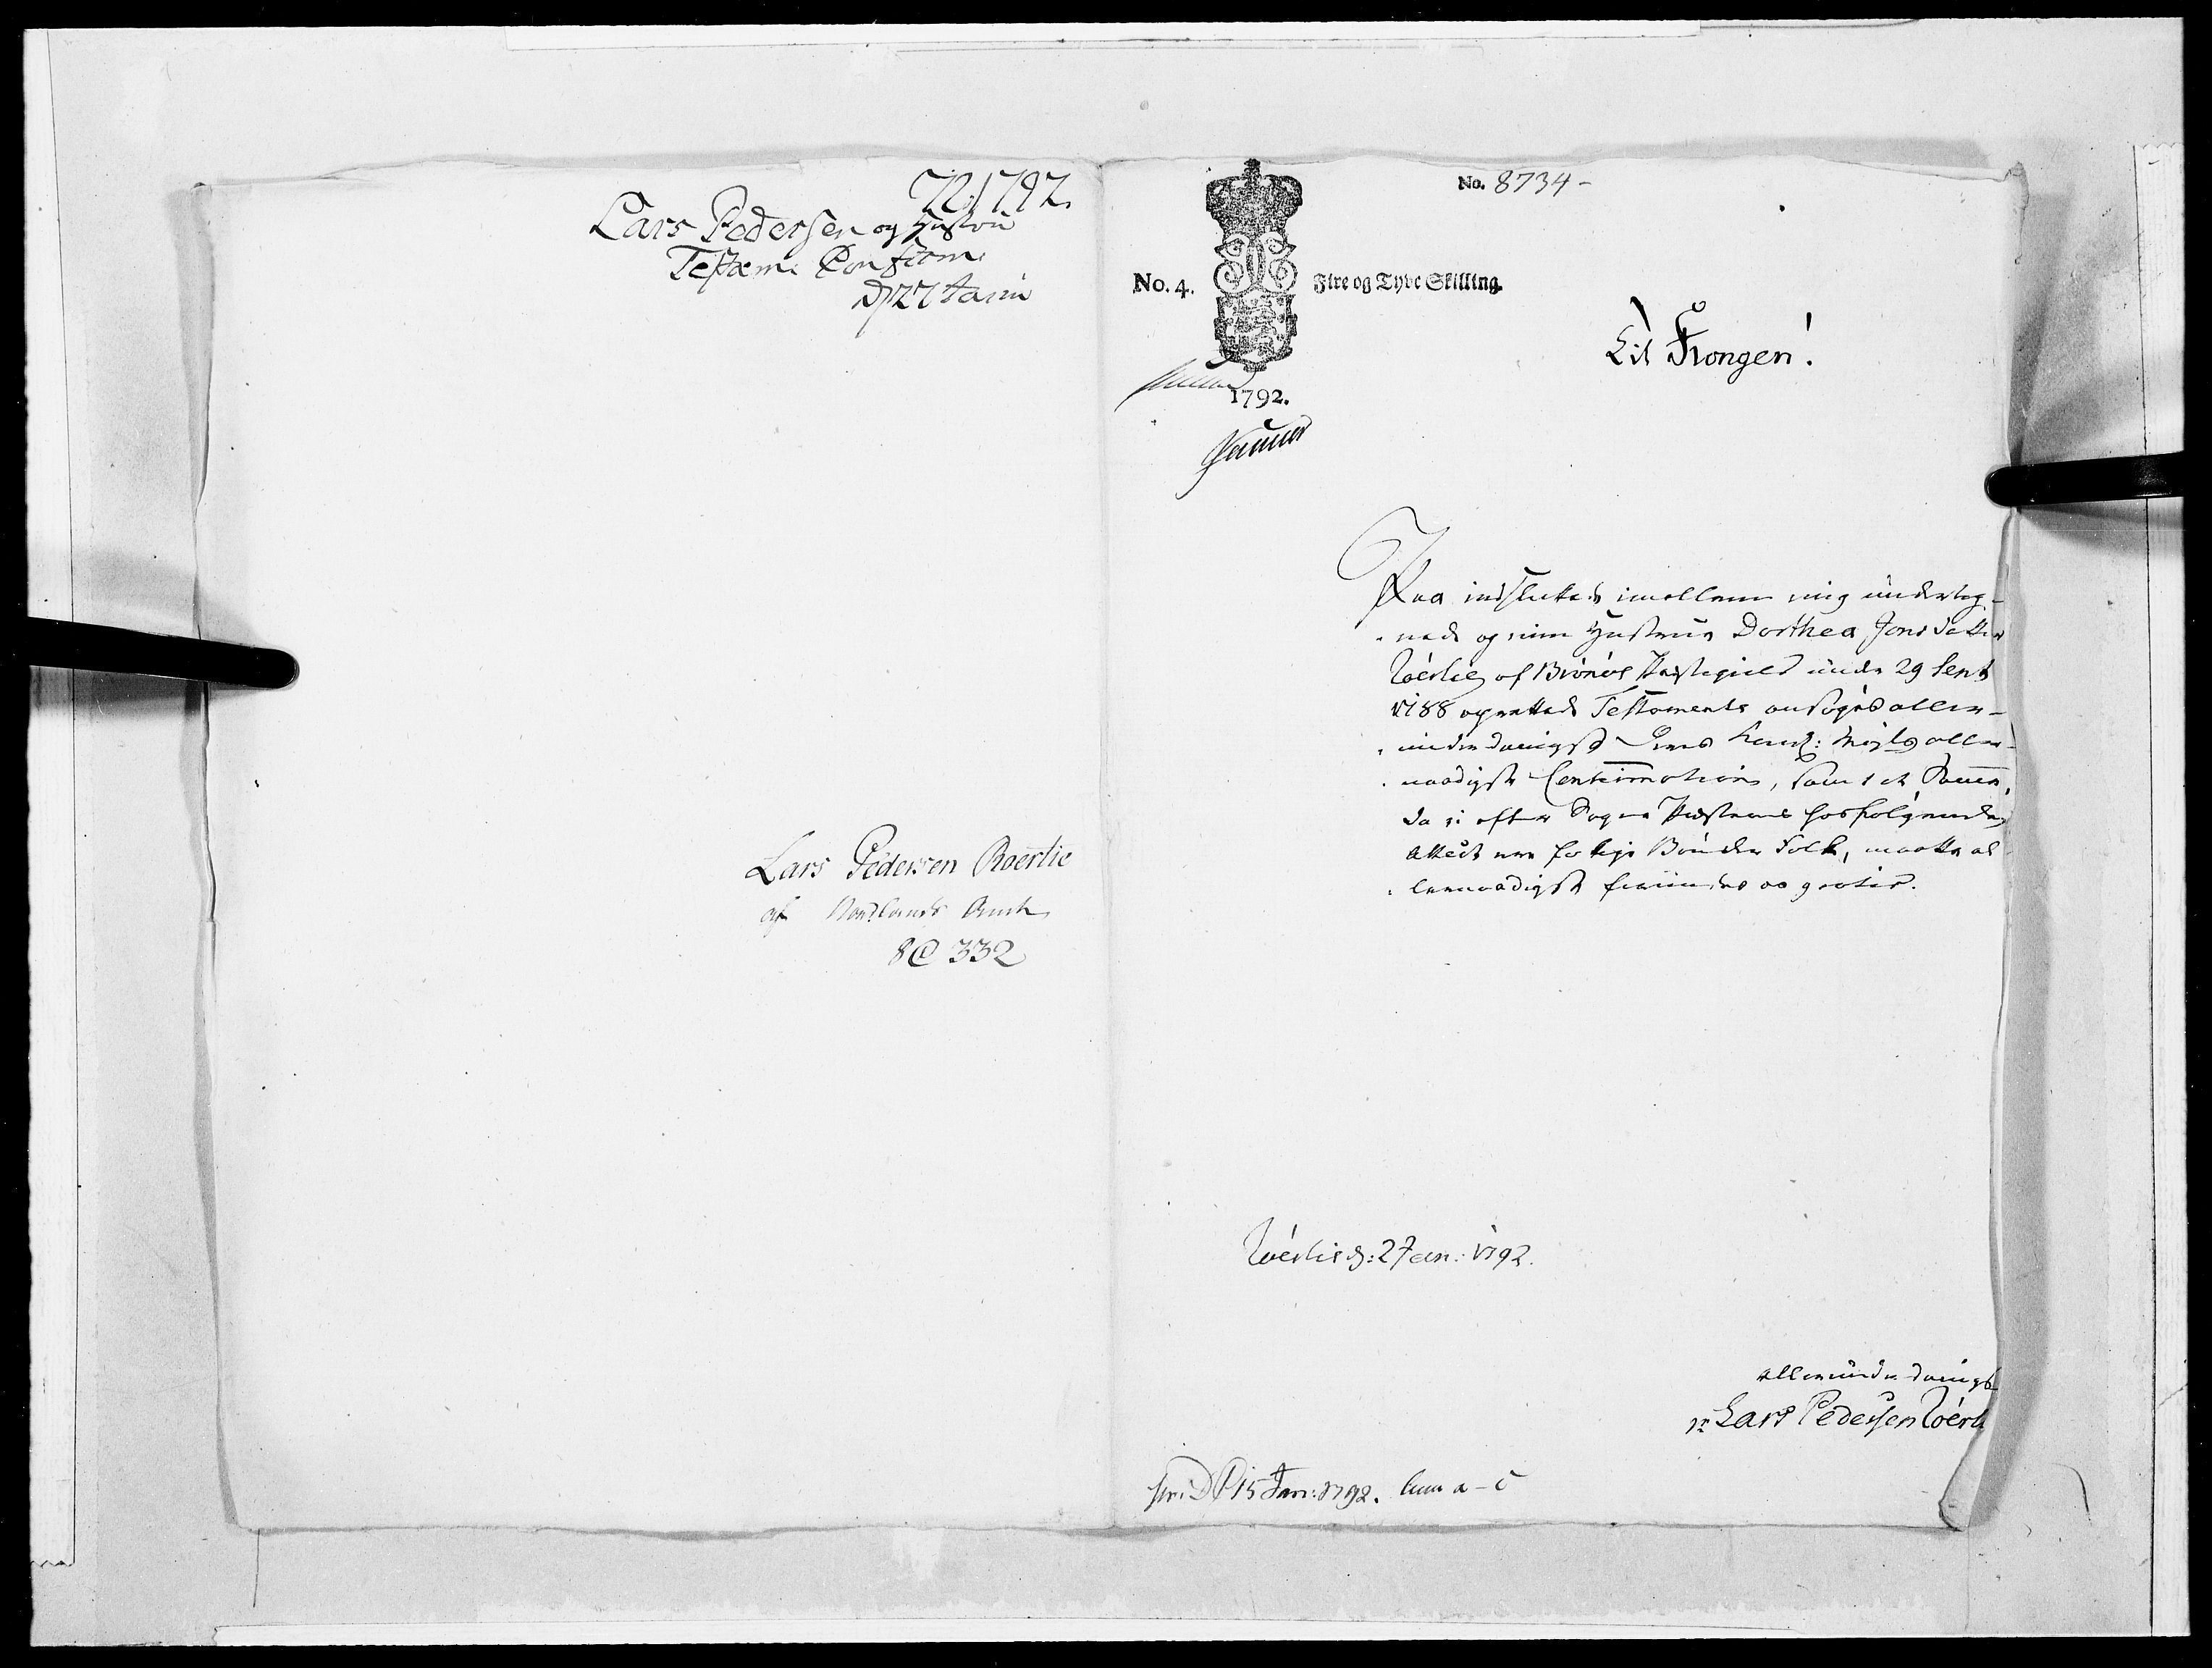 72. 1792.
Lars Pedersen og Hustru
Testam: Confirm:
D 27 Janu
Lars Pedersen Roerlie
af Nordlands Amt
8 @ 332
No. 8734-
No. 4. Fire og Tyve Skilling.
1792.
Til Kongen!
Paa indsluttede imellem mig underteg-
nede og min Hustrue Dorthea Jons Datter
Röerlie af Brönöe Præstegield under 29 Sept
1788 oprettede Testamente ansøges aller-
underdanigst Deres Kongl: Mayts aller-
naadigste Confirmation, som et Summa,
da vi efter Sogne Præstens hosfølgende
Attest ere fattige Bönder Folk, maatte al
lernaadigst forundes os gratis.
Röerlie d: 2 Jan: 1792.
allerunderdanigst
Lars Pedersen Röerli
D 15 Jan: 1792. cum a-c